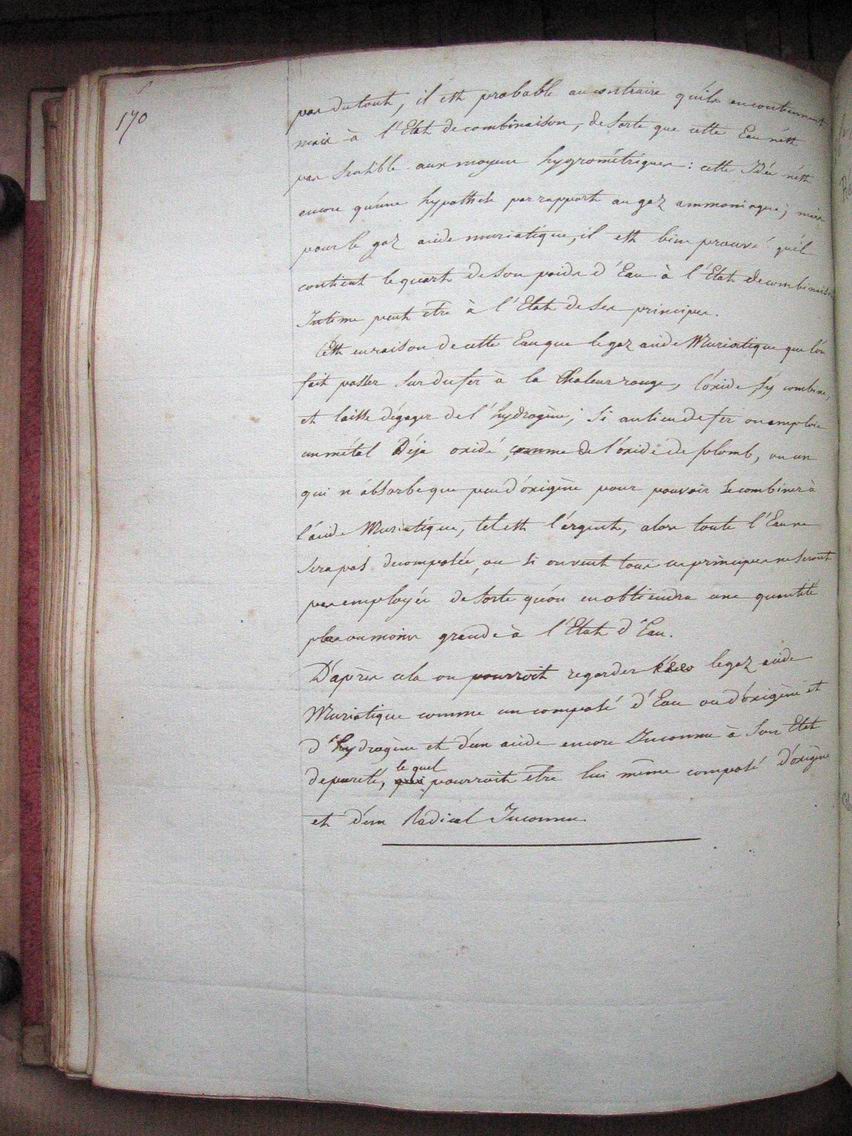 170
pas du tout, il est probable au contraire qu'ils en contiennent
mais à l'Etat de combinaison, de sorte que cette Eau n'est
pas sensible aux moyens hygrométriques : cette Idée n'est
encore qu'une hypothèse par rapport au gaz ammoniaque ; mais
pour le gaz acide muriatique, il est bien prouvé qu'il
contient le quart de son poids d'Eau à l'Etat de combinaison
Intime peut etre à l'Etat de ses principes.
C'est en raison de cette Eau que le gaz acide Muriatique que l'on
fait passer sur du fer à la chaleur rouge, l'oxide s'y combine,
et laisse dégager de l'hydrogène ; si au lieu de fer on emploie
un métal Déja oxidé, comme de l'oxide de plomb, ou un
qui n'absorbe que peu d'oxigène pour pouvoir se combiner à
l'acide Muriatique, tel est l'argent, alors toute l'Eau ne
sera pas decomposée, ou si on veut tous ces principes ne seront
pas employés de sorte qu'on en obtiendra une quantité
plus ou moins grande à l'Etat d'Eau.
D'après cela on pourroit regarder le gaz acide
Muriatique comme un composé d'Eau ou d'oxigène et
d'hydrogène et d'un acide encore Inconnu à son Etat
de pureté, le quel pourroit etre lui même composé d'oxigène
et d'un Radical Inconnu.